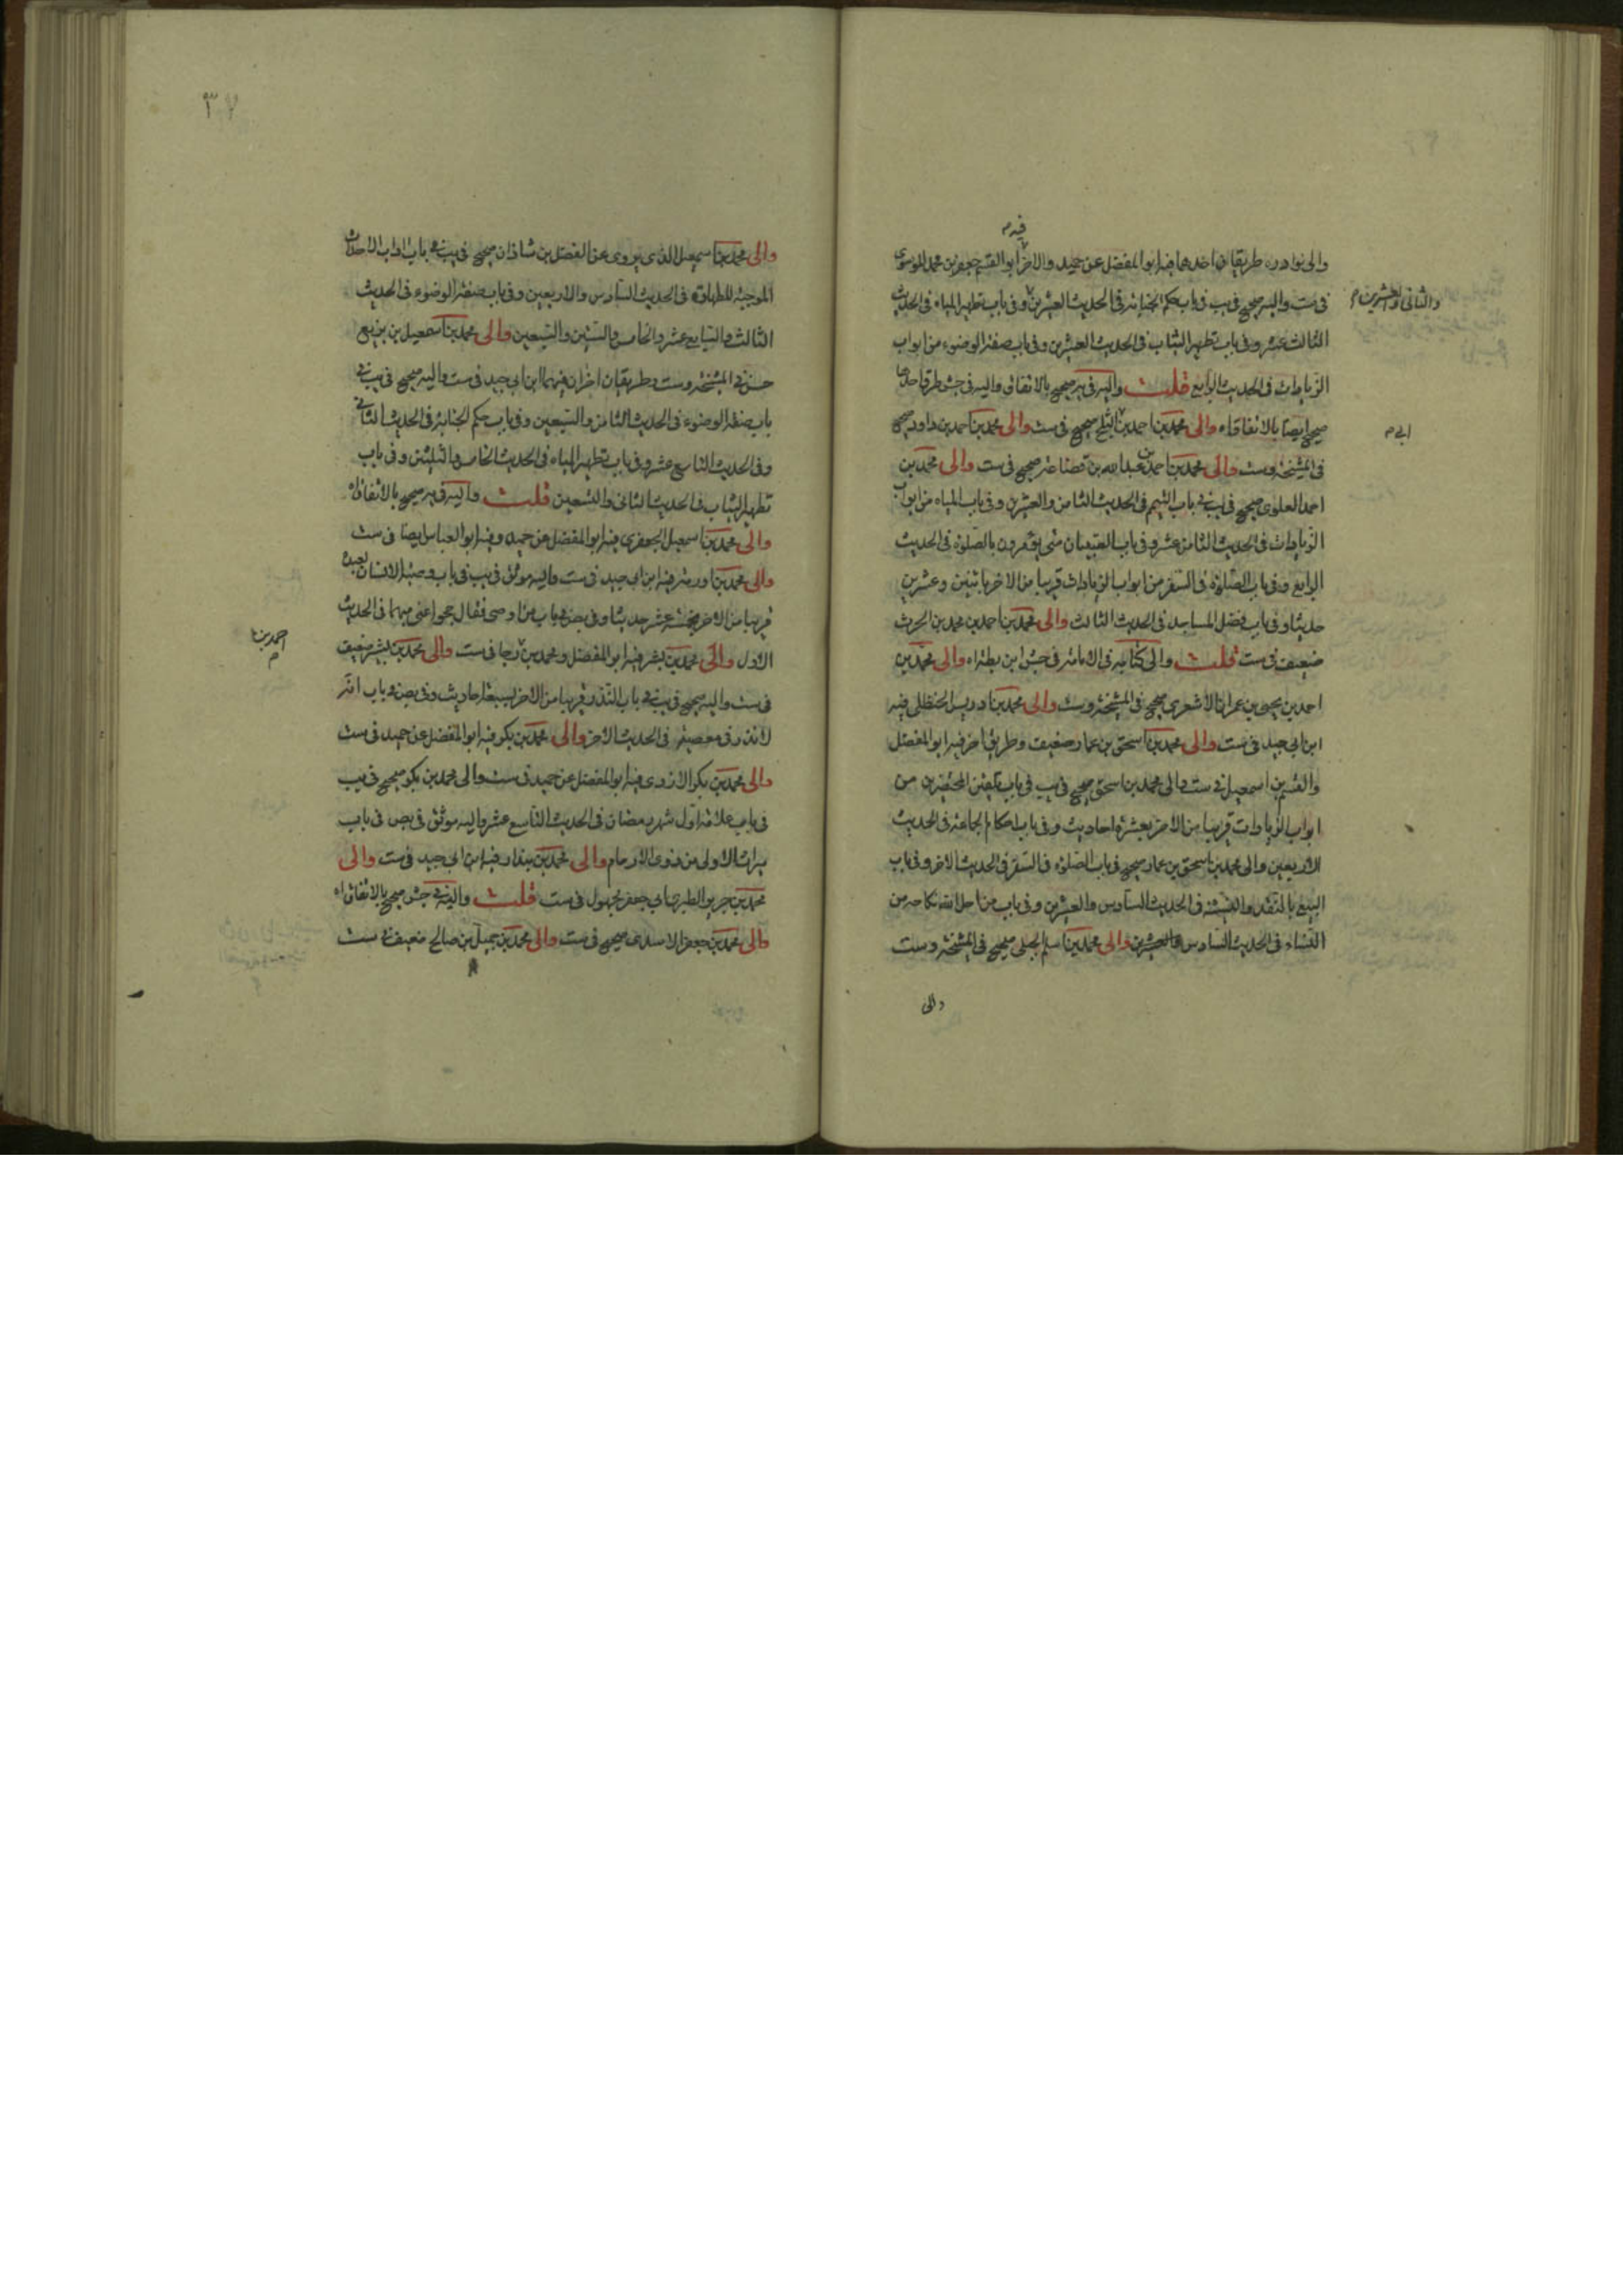 فيه م
والى نوادره طريقان احدهما فيه ابو المفضل عن حميد والاخر ابو القسم جعفر بن محمد الموسوى
فى ست واليه صحيح فى يب فى باب حكم الجنابة فى الحديث العشرين وفى باب تطهير المياه فى الحديث
والثانى والعشرين م
الثالث عشر وفى باب تطهير الثياب فى الحديث العشرين وفى باب صفة الوضوء من ابواب
الزيادات فى الحديث الرابع قلت واليه فى ير صحيح بالاتفاق واليه فى جش طرق احدها
صحيح ايضا بالاتفاق اه والى محمد بن احمد بن الثلج صحيح فى ست والى محمد بن احمد بن داود صحيح
ابى م
فى المشيخة وست والى محمد بن احمد بن عبدالله بن قضاعة صحيح فى ست والى محمد بن
احمد العلوى صحيح فى يب فى باب التيمم فى الحديث الثامن والعشرين وفى باب المياه من ابواب
الزيادات فى الحديث الثامن عشر وفى باب الصبيان متى يؤمرون بالصلوة فى الحديث
الرابع وفى باب الصلوة فى السفر من ابواب الزيادات قريبا من الاخر باثنين وعشرين
حديثا وفى باب فضل المساجد فى الحديث الثالث والى محمد بن احمد بن محمد بن الحرث
ضعيف فى ست قلت والى كتابه فى الامامة فى جش ابن بطة اه والى محمد بن
احمد بن يحيى بن عمران الاشعرى صحيح فى المشيخة وست والى محمد بن ادريس الحنظلى فيه
ابن ابى جيد فى ست والى محمد بن اسحق بن عمار ضعيف وطريق اخر فيه ابو المفضل
والقسم بن اسمعيل فى ست والى محمد بن اسحق صحيح فى يب فى باب تلقين المحتضرين من
ابواب الزيادات قريبا من الاخر بعشرة احاديث وفى باب احكام الجماعة فى الحديث
الاربعين والى محمد بن اسحق بن عمار صحيح فى باب الصلوة فى السفر فى الحديث الاخر وفى باب
البيع بالنقد والنسيئة فى الحديث السادس والعشرين وفى باب من احل الله نكاحه من
النساء فى الحديث السادس والعشرين والى محمد بن اسلم الجبلى صحيح فى المشيخة وست
والى
٣٧
والى محمد بن اسمعيل الذى يروى عن الفضل بن شاذان صحيح فى يب فى باب اداب الاحداث
الموجبة للطهارة فى الحديث السادس والاربعين وفى باب صفة الوضوء فى الحديث
الثالث والسابع عشر والخامس والستين والسبعين والى محمد بن اسمعيل بن بزيع
حسن فى المشيخة وست وطريقان اخران فيهما ابن ابى جيد فى ست واليه صحيح فى يب فى
باب صفة الوضوء فى الحديث الثامن والسبعين وفى باب حكم الجنابة فى الحديث الثانى
وفى الحديث التاسع عشر وفى باب تطهير المياه فى الحديث الخامس والثلثين وفى باب
تطهير الثياب فى الحديث الثانى والتسعين قلت واليه فى ير صحيح بالاتفاق اه
والى محمد بن اسمعيل الجعفرى فيه ابو المفضل عن حميد وفيه ابو العباس ايضا فى ست
والى محمد بن اورمة فيه ابن ابى جيد فى ست واليه موثق فى يب فى باب وصية الانسان لعبده
قريبا من الاخر بخمسة عشر حديثا وفى بص فى باب من اوصى فقال حجوا عنى مبهما فى الحديث
احمد بن م
الاول والى محمد بن بشر فيه ابو المفضل ومحمد بن رجا فى ست والى محمد بن بشير ضعيف
فى ست واليه صحيح فى يب فى باب النذر قريبا من الاخر بسبعة احاديث وفى بص فى باب انه
لا نذر فى معصية فى الحديث الاخر والى محمد بن بكر فيه ابو المفضل عن حميد فى ست
والى محمد بن بكر الازدى فيه ابو المفضل عن حميد فى ست والى محمد بن بكر صحيح فى يب
فى باب علامة اول شهر رمضان فى الحديث التاسع عشر واليه موثق فى بص فى باب
ميراث الاولى من ذوى الارحام والى محمد بن بندار فيه ابن ابى جيد فى ست والى
محمد بن جرير الطبرى ابى جعفر مجهول فى ست قلت واليه فى جش صحيح بالاتفاق اه
والى محمد بن جعفر الاسدى صحيح فى ست والى محمد بن جميل بن صالح ضعيف فى ست